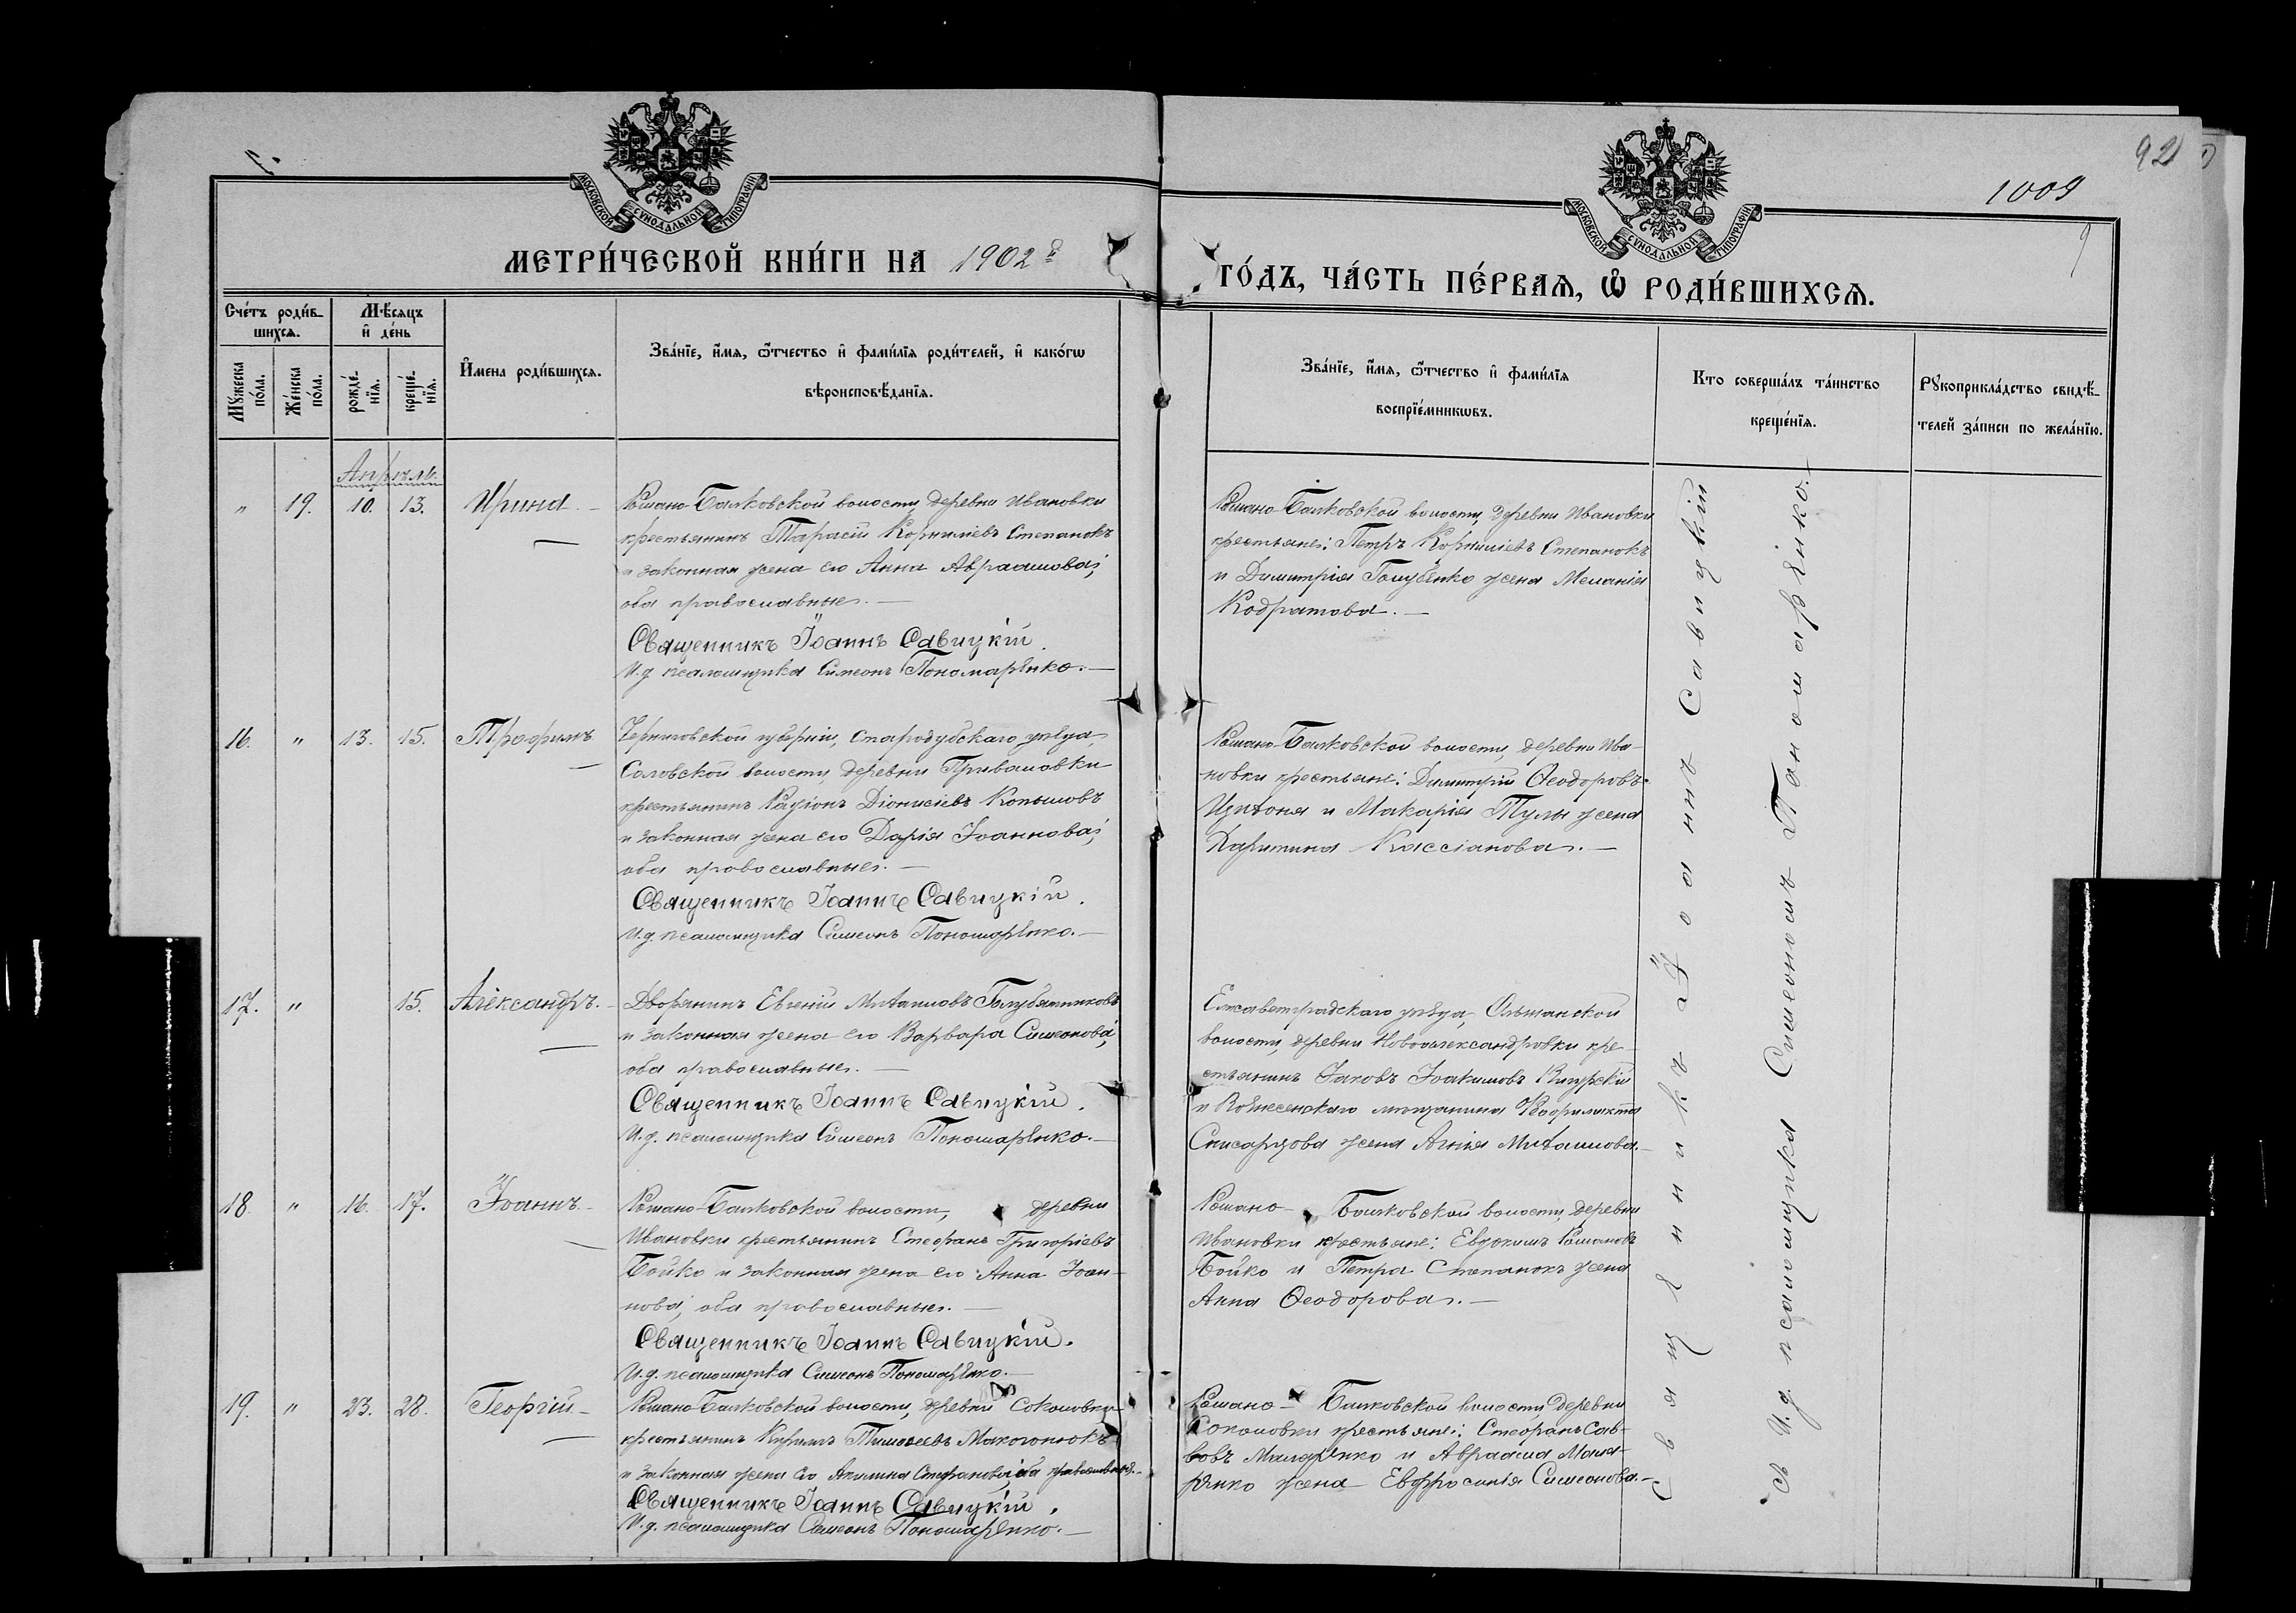 92
1009
МОСКОВСКОЙ СУНОДАЛЬНОЙ ТИПОГРАФІИ
МОСКОВСКОЙ СУНОДАЛЬНОЙ ТИПОГРАФІИ
МЕТРИ́ЧЕСКОЙ КНИ́ГИ НА 1902й
ГО́ДЪ, ЧА́СТЬ ПЕ́РВАѦ, Ѽ РОДИ́ВШИХСѦ.
Сче́тъ роди́в-
шихсѧ.
Мѣ́сѧцъ
и҆ де́нь
Мꙋ́жеска по́ла.
Же́нска по́ла.
рожде́-
нїѧ.
креще́-
нїѧ.
И҆мена роди́вшихсѧ.
Зва́нїе, и҆́мѧ, ѻ҆́тчество и҆ фами́лїѧ роди́телей, и҆ како́гѡ
вѣроисповѣ́данїѧ.
Зва́нїе, и҆́мѧ, ѻ҆́тчество и҆ фами́лїѧ
воспрїе́мникѡвъ.
Кто соверша́лъ та́инство
креще́нїѧ.
Рꙋкоприкла́дство свидѣ́-
телей за́писи по жела́нїю.
Апрѣль.
" 19. 10. 13. Ирина. –
Романо-Балковской волости, деревни Ивановки
крестьянинъ Тарасій Корниліевъ Степанокъ
и законная жена его Анна Авраамова,
оба православные. –
Священникъ Іоаннъ Савицкій.
И. д. псаломщика Симеонъ Пономаренко. –
Романо-Балковской волости, деревни Ивановки
крестьяне: Петръ Корниліевъ Степанокъ
и Димитрія Голубенко жена Меланія
Кодратова. –
16. " 13. 15. Трофимъ
Черниговской губерніи, Стародубскаго уѣзда,
Соловской волости деревни Приваловки
крестьянинъ Радіонъ Діонисіевъ Копыловъ
и законная жена его Дарія Іоаннова,
оба православные. –
Священникъ Іоаннъ Савицкій.
И. д. псаломщика Симеонъ Пономаренко. –
Романо-Балковской волости, деревни Ива-
новки крестьяне: Димитрій Ѳеодоровъ
и Макарія Тулы жена
Харитина Кассіанова. –
17. " 15. Александръ. –
Дворянинъ Евгеній Михаиловъ Голубятниковъ
и законная жена его Варвара Симеонова,
оба православные. –
Священникъ Іоаннъ Савицкій.
И. д. псаломщика Симеонъ Пономаренко. –
Елисаветградскаго уѣзда, Ольшанской
волости, деревни Новоалександровки кре-
стьянинъ Іаковъ Іоакимовъ
и Вознесенскаго мѣщанина Ѳеофилакта
жена Агнія Михаилова. –
18. " 16. 17. Іоаннъ. –
Романо-Балковской волости, деревни
Ивановки крестьянинъ Стефанъ Григоріевъ
Бойко и законная жена его Анна Іоан-
нова, оба православные. –
Священникъ Іоаннъ Савицкій.
И. д. псаломщика Симеонъ Пономаренко. –
Романо-Балковской волости, деревни
Ивановки крестьяне: Евдокимъ Романовъ
Бойко и Петра Степанокъ жена
Анна Ѳеодорова. –
19. " 23. 28. Георгій. –
Романо-Балковской волости, деревни Соколовки
крестьянинъ Кириллъ Тимоѳеевъ Макогонюкъ
и законная жена его Акилина Стефанова, оба православные. –
Священникъ Іоаннъ Савицкій.
И. д. псаломщика Симеонъ Пономаренко. –
Романо-Балковской волости, деревни
Соколовки крестьяне: Стефанъ Сав-
вовъ Маляренко и Авраама Маля-
ренко жена Евфросинія Симеонова. –
Священникъ Іоаннъ Савицкій
съ И. д. псаломщика Симеономъ Пономаренко. –